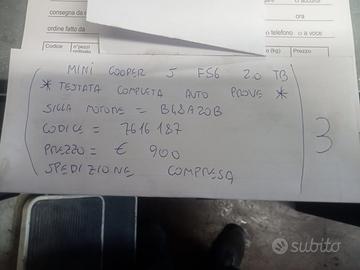 consegna da
ordine fatto da
o a voce
Codice
n°pezzi
(kg)
Prezzo
MINI COOPER S F56 2.0 TB
* TESTATA COMPLETA AUTO PROVE *
SIGLA MOTORE = B48A20B
CODICE = 7616187
PREZZO = € 900
SPEDIZIONE COMPRESA
3
subito